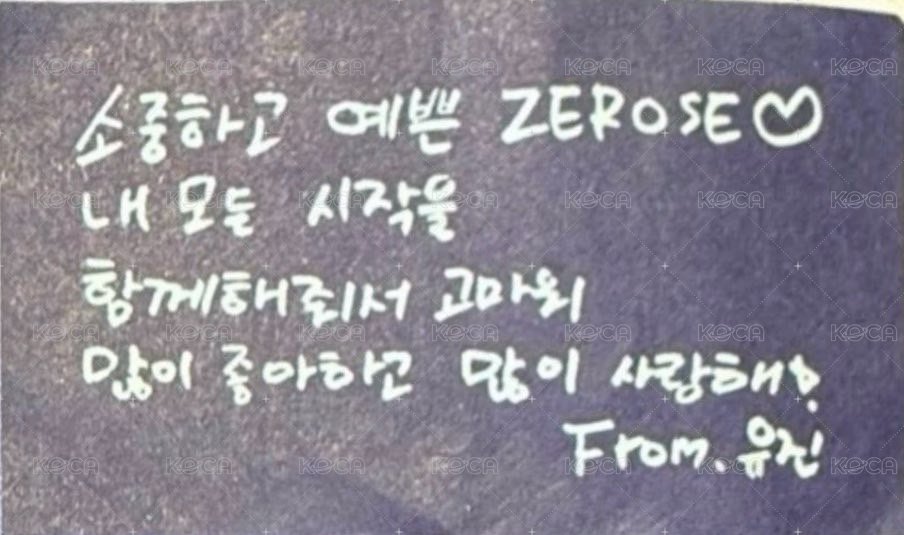 소중하고 예쁜 ZEROSE♡
내 모든 시작을
함께해줘서 고마워
많이 좋아하고 많이 사랑해!
From. 유진